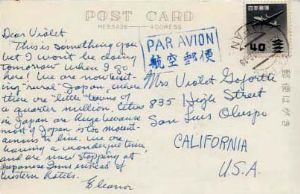 POST CARD
MESSAGE ADDRESS
Dear Violet
This is something you
but I won't be doing
tomorrow when I go
here! We are now
ing rural Japan, where
there are little towns of
a quarter million. Cities
in Japan are huge because
most of Japan is too
We are
having a wonderful time,
and are now stopping at
Japanese Inns instead of
Western hotels.
Eleanor
PAR AVION
航空郵便
Mrs Violet Goforth
835 High Street
San Luis Obispo
CALIFORNIA
U.S.A.
40